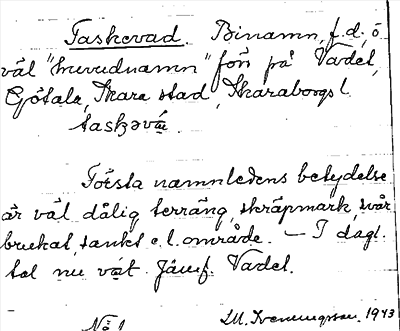 Taskevad. Binamn, f.d., o.
väl "huvudnamn" förr på Vadet,
Götala, Skara stad, Skaraborgs l.
Första namnledens betydelse
är väl dålig terräng, skräpmark, svår
brukat, sankt e.l. område. — I dagl.
tal nu vat. Jämf. Vadet.
1943